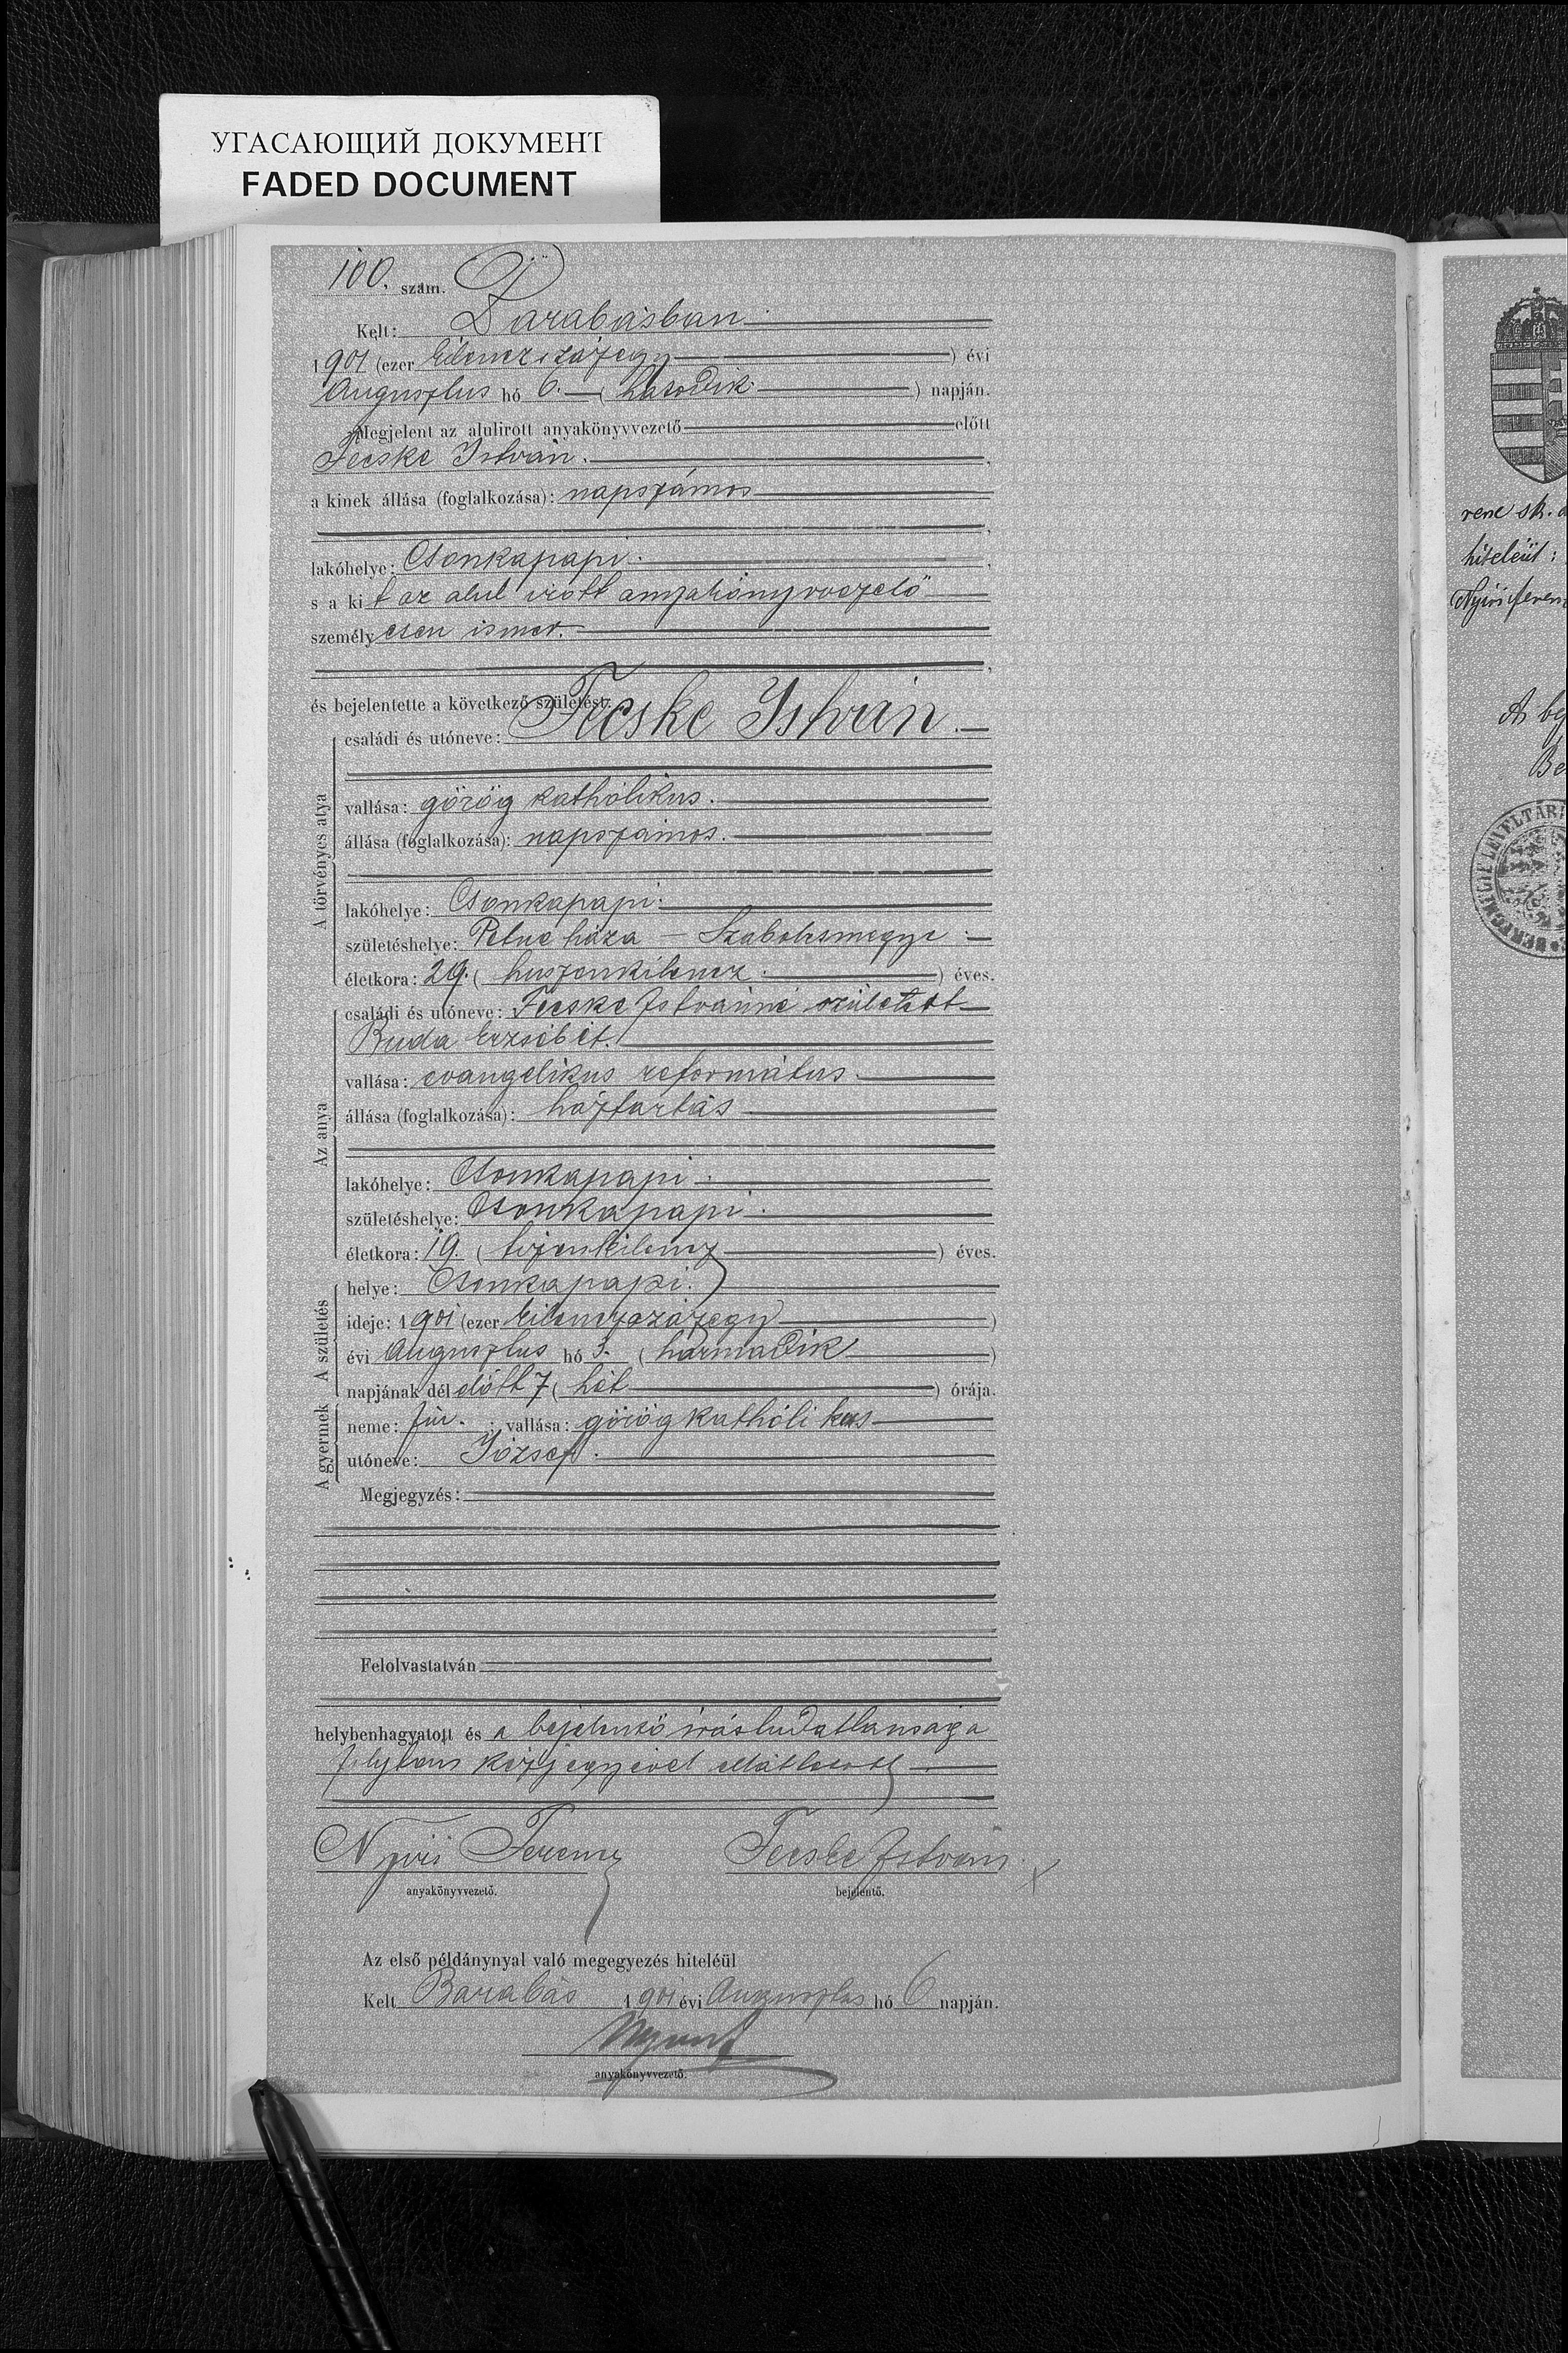 УГАСАЮЩИЙ ДОКУМЕНТ
FADED DOCUMENT
100. szám.
Kelt: Barabásban
1901 (ezer kilenczszázegy) évi
Augusztus hó 6. (hatodik) napján.
Megjelent az alulirott anyakönyvvezető előtt
Fecske István.
a kinek állása (foglalkozása): napszámos
lakóhelye: Csonkapapi.
s a kit az alul irott anyakönyvvezető
személyesen ismer.
és bejelentette a következő születést:
A törvényes atya
családi és utóneve: Fecske István.
vallása: görög katholikus.
állása (foglalkozása): napszámos.
lakóhelye: Csonkapapi.
születéshelye: Petneháza – Szabolcsmegye.
életkora: 29. (huszonkilencz.) éves.
Az anya
családi és utóneve: Fecske Istvánné született
Buda Erzsébet.
vallása: evangelikus református.
állása (foglalkozása): háztartás
lakóhelye: Csonkapapi.
születéshelye: Csonkapapi.
életkora: 19. (tizenkilencz) éves.
A születés
helye: Csonkapapi.
ideje: 1901 (ezer kilenczszázegy)
évi Augusztus hó 3. (harmadik)
napjának dél előtt 7 (hét) órája.
A gyermek
neme: fiú. ; vallása: görög kathólikus
utóneve: József.
Megjegyzés:
Felolvastatván
helybenhagyatott és a bejelentő irástudatlansága
folytán kézjegyével elláttatott
Nyiri Ferencz Fecske István x
anyakönyvvezető. bejelentő.
Az első példánynyal való megegyezés hiteléül
Kelt Barabás 1901 évi Augusztus hó 6 napján.
anyakönyvvezető.
rene sk.
hiteléül:
Nyiri Feren
A be
Be